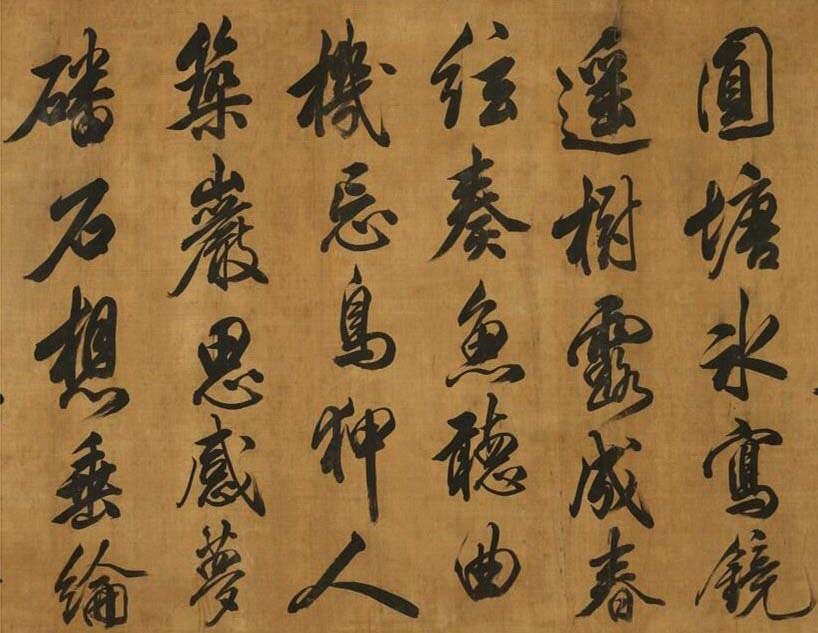 圓塘氷寫鏡
遙樹露成春
絃奏魚聽曲
機忘鳥狎人
築巖思感夢
磻石想垂綸